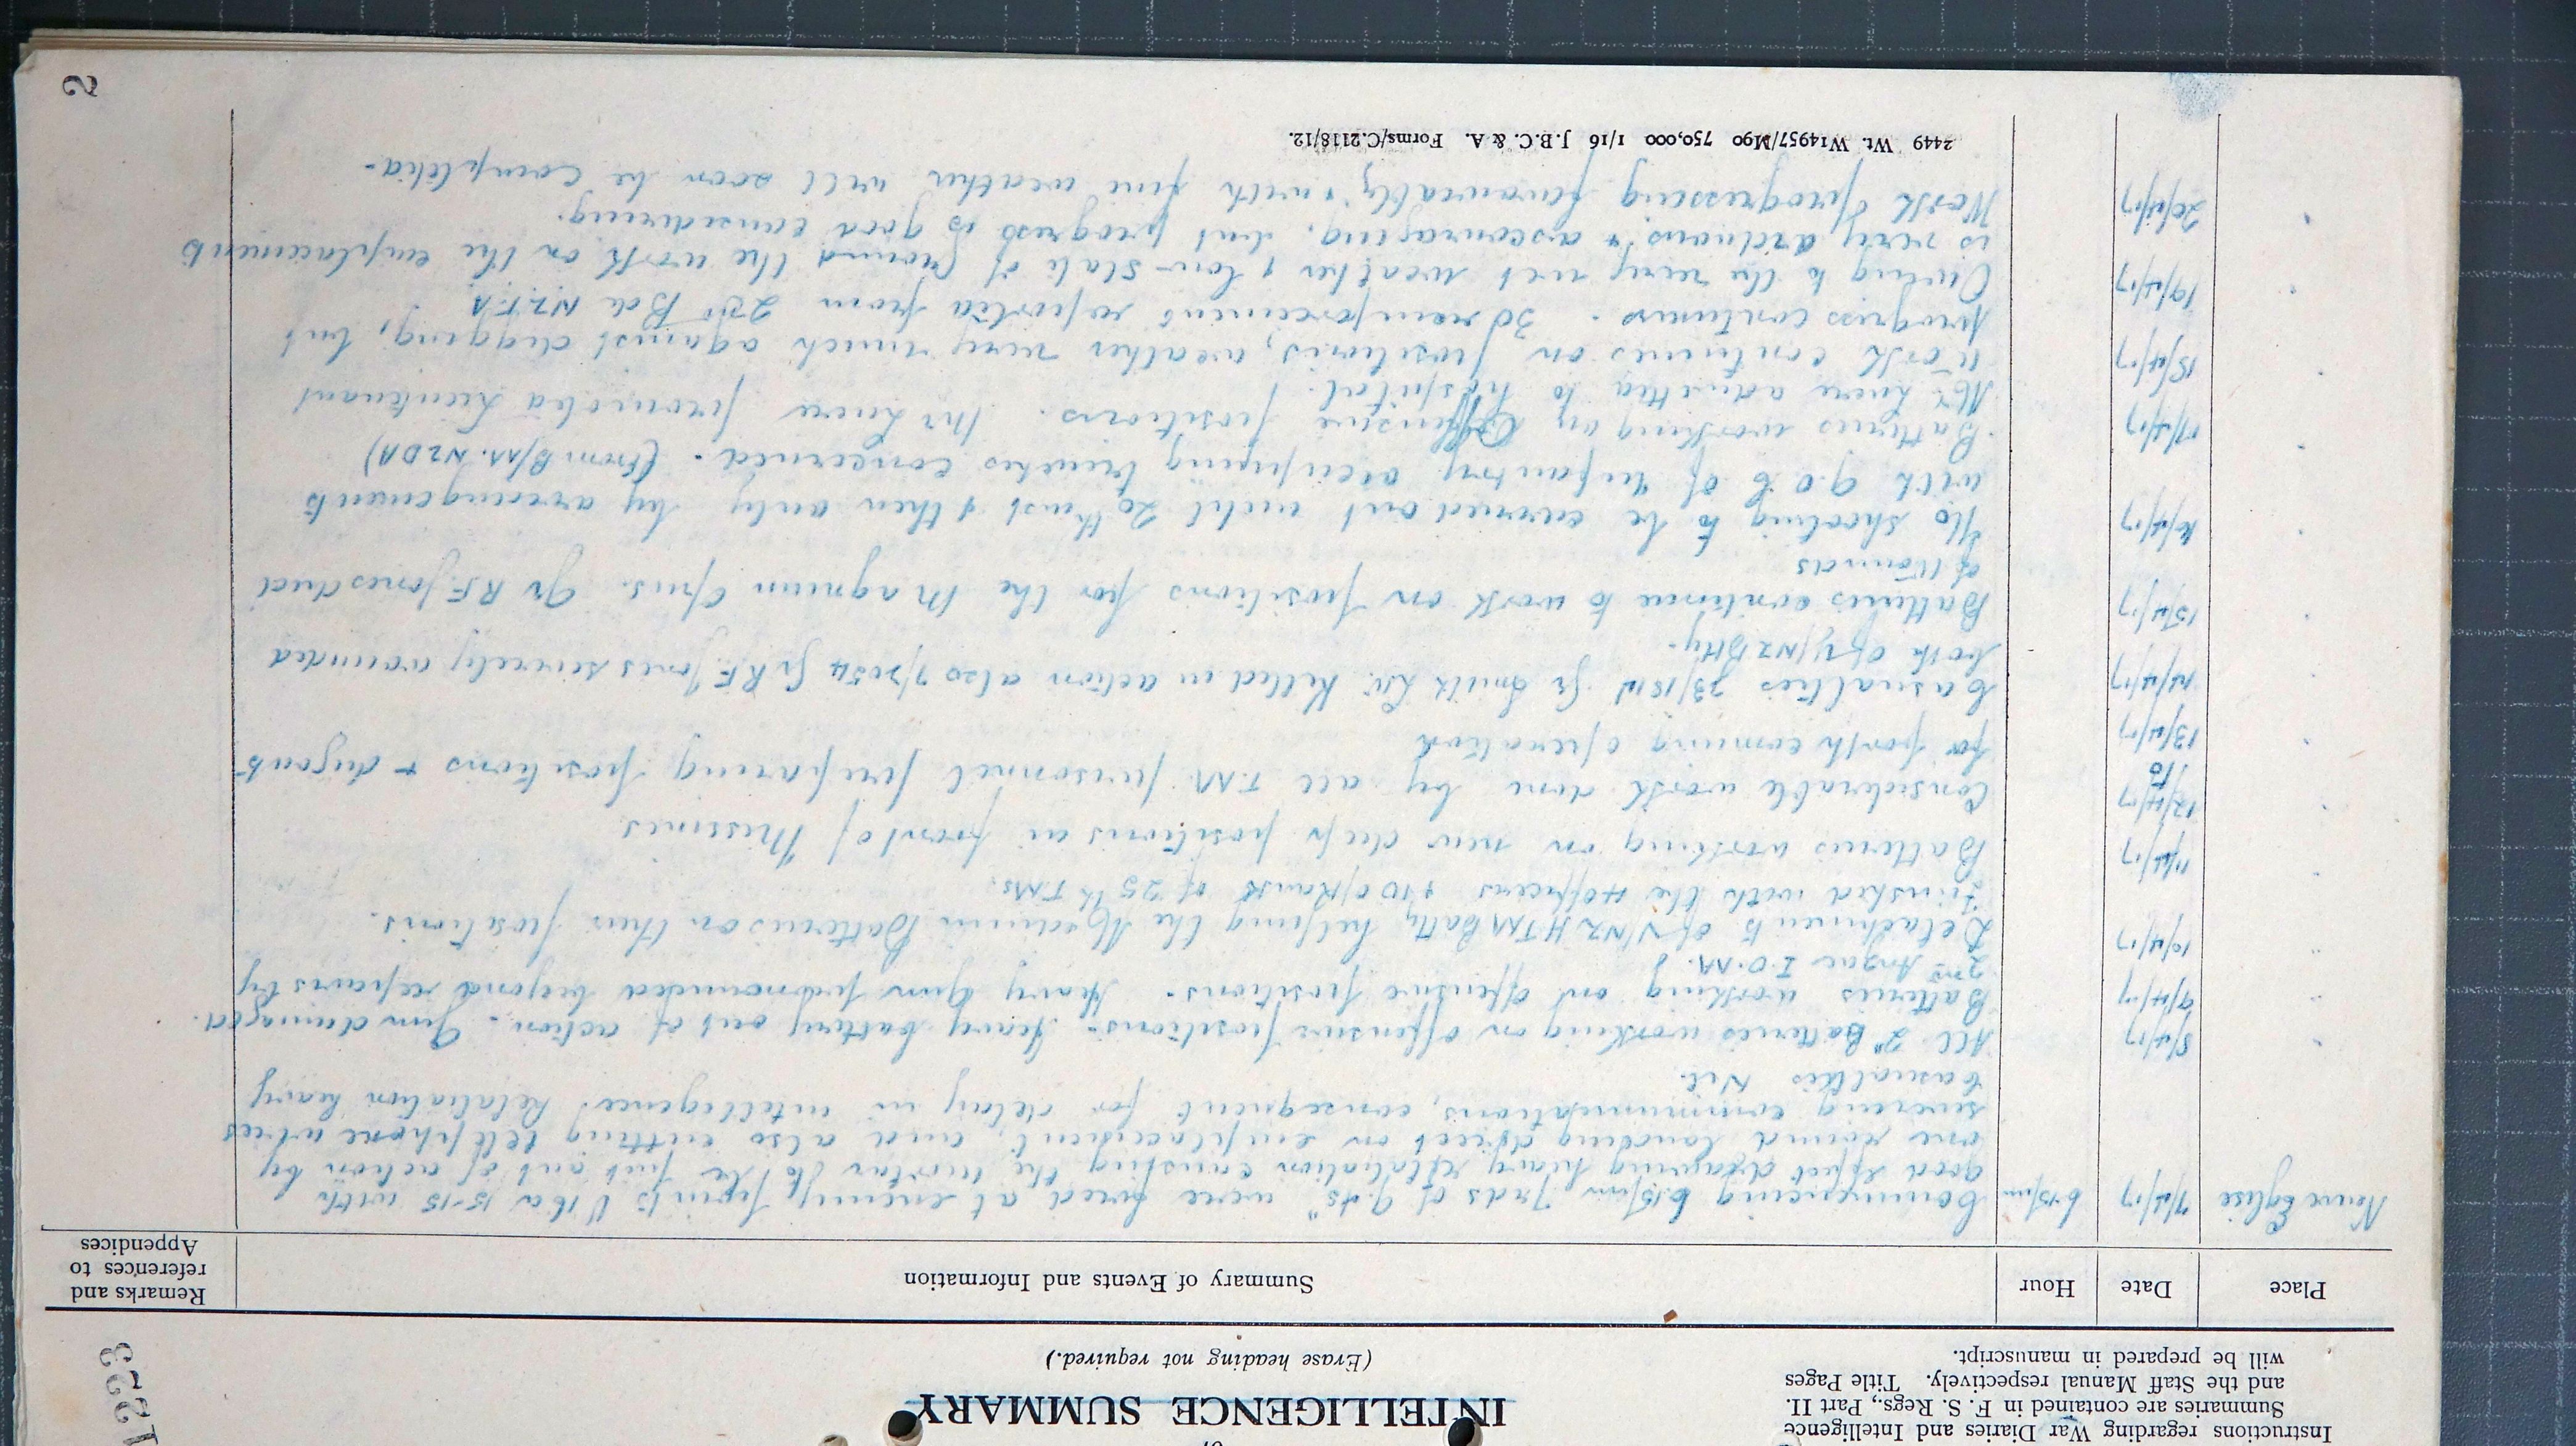 Instructions regarding War Diaries and Intelligence
Summaries are contained in F. S. Regs., Part II.
and the Staff Manual respectively. Title Pages
will be prepared in manuscript.
or
INTELLIGENCE SUMMARY
(Erase heading not required.)
1233
Place Date Hour Summary of Events and Information Remarks and references to Appendices
Neuve Eglise 7/4/17 6.15pm Commencing 6.15pm 7rds of 9.45" were fired at enemy points U 16 a 15-15 with
good effect drawing heavy retaliation causing the mortar to be put out of action by
one round landing direct on emplacement, and also cutting telephone wires
severing communications, consequent for delay in intelligence. Retaliation heavy
Casualties Nil.
" 8/4/17 All 2" Batteries working on offensive positions. Heavy battery out of action. Gun damaged.
" 9/4/17 Batteries working on offensive positions. Heavy Gun pronounced beyond repairs by
2nd Anzac I.O.M.
" 10/4/17 Detachments of V/NZ HTM Batty helping the Medium Batteries on their positions.
Finished with the 4 officers & 40 o/Ranks of 25th T.Ms.
" 11/4/17 Batteries working on new deep positions in front of Messines
" 12/4/17 Considerable work done by all T.M. personnel preparing positions & dugouts
to
" 13/4/17 for forth coming operation
" 14/4/17 Casualties 23/1814 Gr Smith Killed in action also 7/2054 Gr R F Jones severely wounded
both of V/NZ Bty.
" 15/4/17 Batteries continue to work on positions for the Magnum Opus. Gr R F Jones died
of Wounds
" 16/4/17 No shooting to be carried out until 20th inst & then only by arrangements
with G.O.C of Infantry occupying trenches concerned. (from B/M. NZDA)
" 17/4/17 Batteries working on Offensive positions. promoted Lieutenant
admitted to hospital.
" 18/4/17 Work continues on positions, weather very much against digging, but
progress continues. 30 reinforcement reported from 2nd Bde NZFA
" 19/4/17 Owing to the very wet weather & low state of ground the work on the emplacements
is very arduous & discouraging, but progress is good considering.
" 20/4/17 Work progressing favourably & with fine weather will soon be completed.
2449 Wt. W14957/M90 750,000 1/16 J.B.C. & A. Forms/C.2118/12.
2